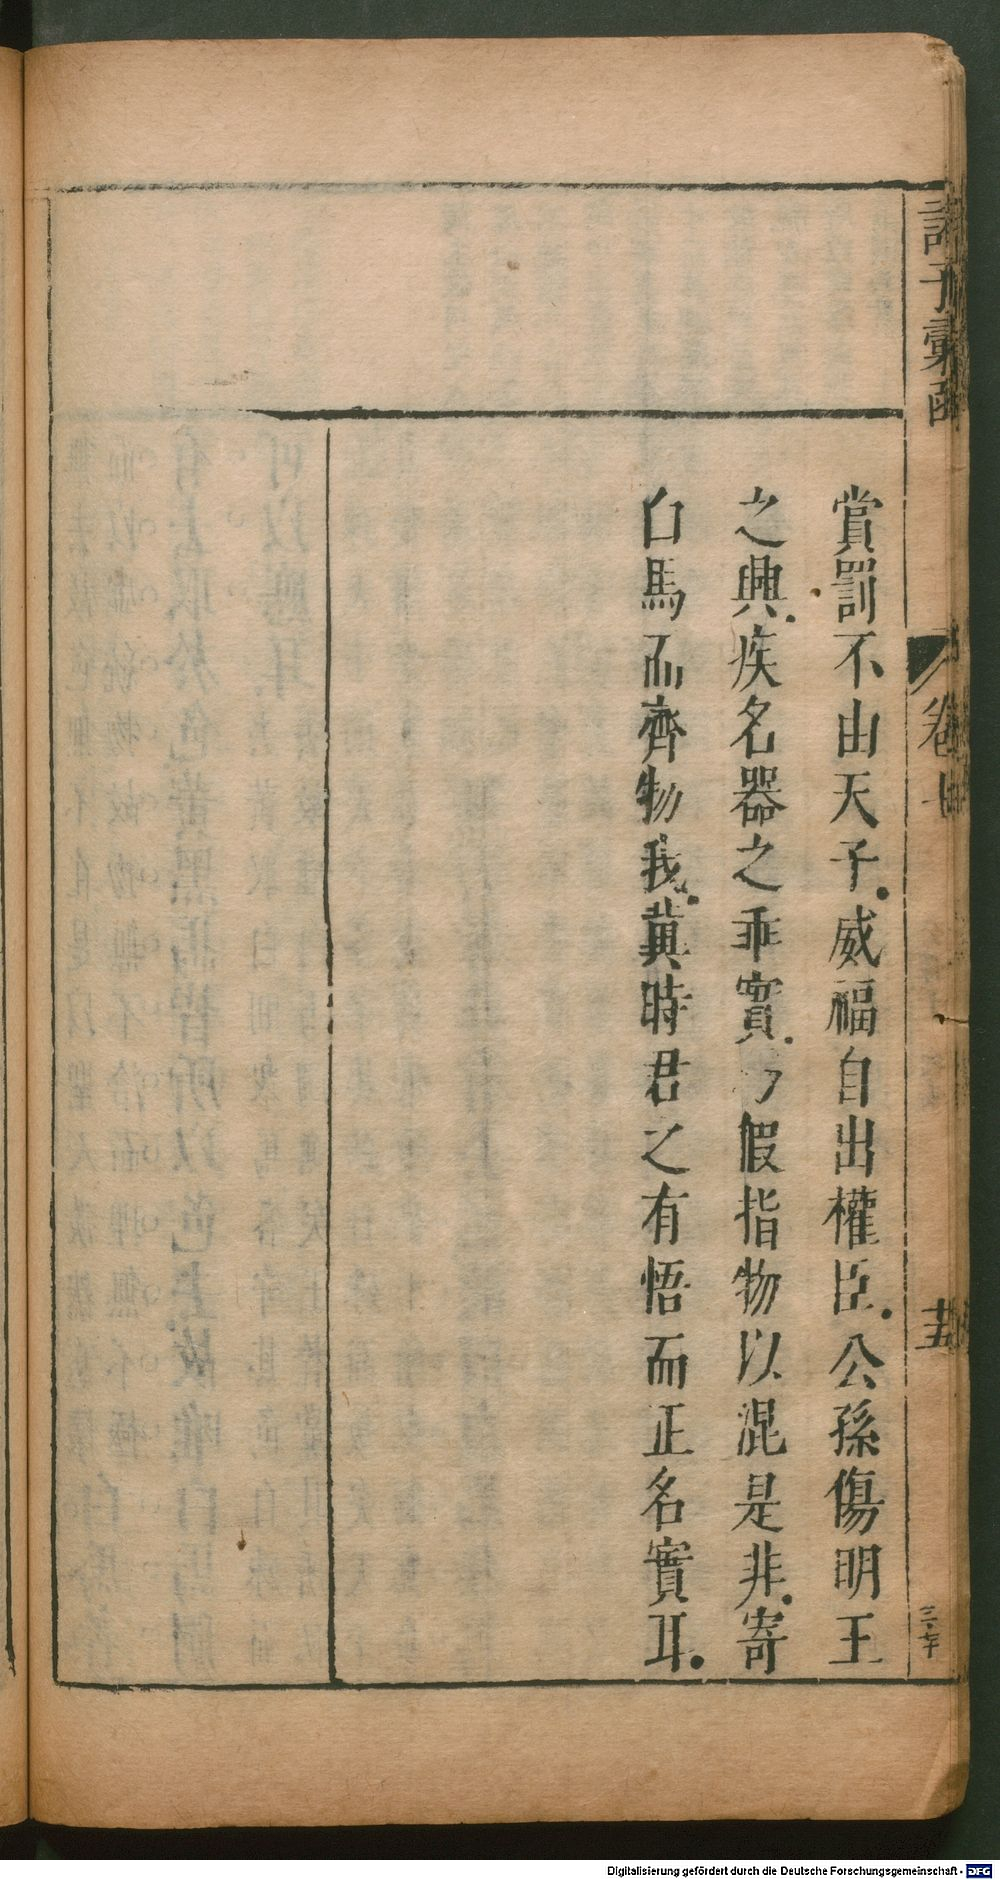 賞罰不由天子．威福自出權臣．公孫傷明王
之興．疾名器之乖實．乃假指物以混是非．寄
白馬而齊物我．冀時君之有悟而正名實耳．
諸子彙函
卷
Digitalisierung gefördert durch die Deutsche Forschungsgemeinschaft - DFG